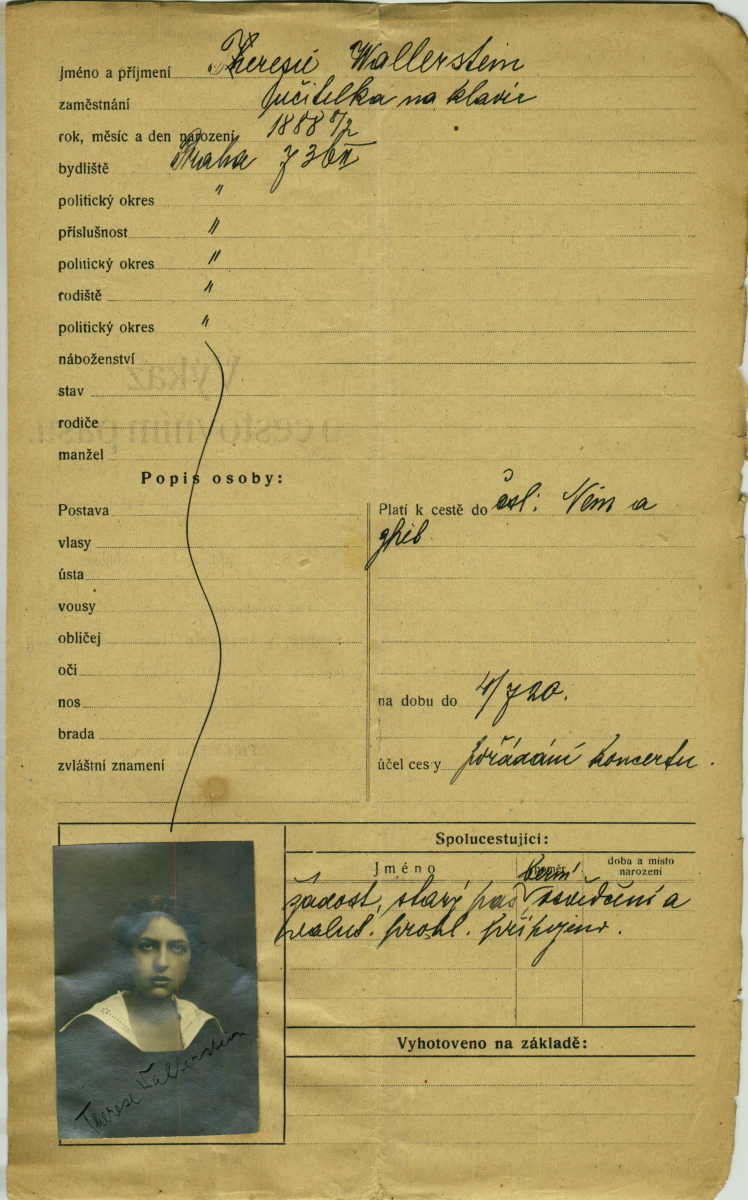 jméno a příjmení Theresie Wallerstein
zaměstnání učitelka na klavír
rok, měsíc a den narození 1888 8/2
bydliště Praha
politický okres "
příslušnost "
politický okres "
rodiště "
politický okres "
náboženství
stav
rodiče
manžel
Popis osoby:
Postava
vlasy
ústa
vousy
obličej
oči
nos
brada
zvláštní znamení
Platí k cestě do čsl. Něm a
na dobu do 4/7 20.
účel cesty pořádání koncertu.
Spolucestující:
Jméno
doba a místo narození
žádost, starý pas, berní osvědčení a
prohl. připojeno.
Vyhotoveno na základě:
Therese Wallerstein